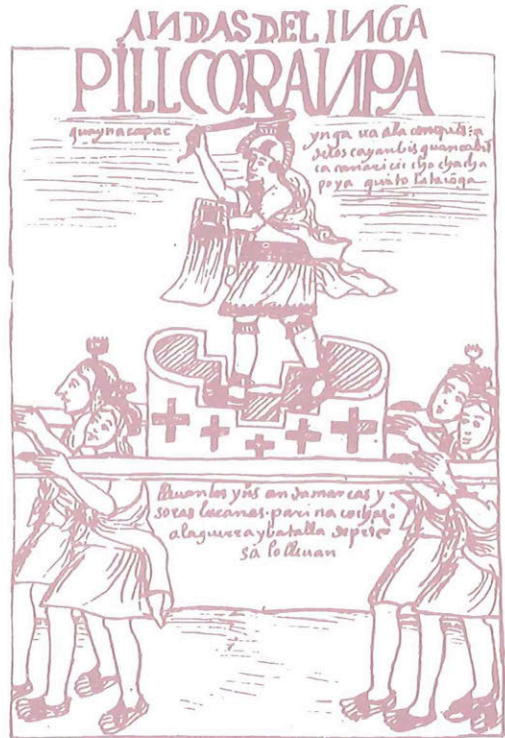 ANDAS DEL INGA
PILLCORANPA
guaynacapac
ynga ua alla conquista
de los cayanbis guancabil
ca canari cicho chacha
poya quito lataconga
lleuan los yns andamarcas y
soras lucanas parinacochas
a la guerra y batalla de prie
sa lo lleuan